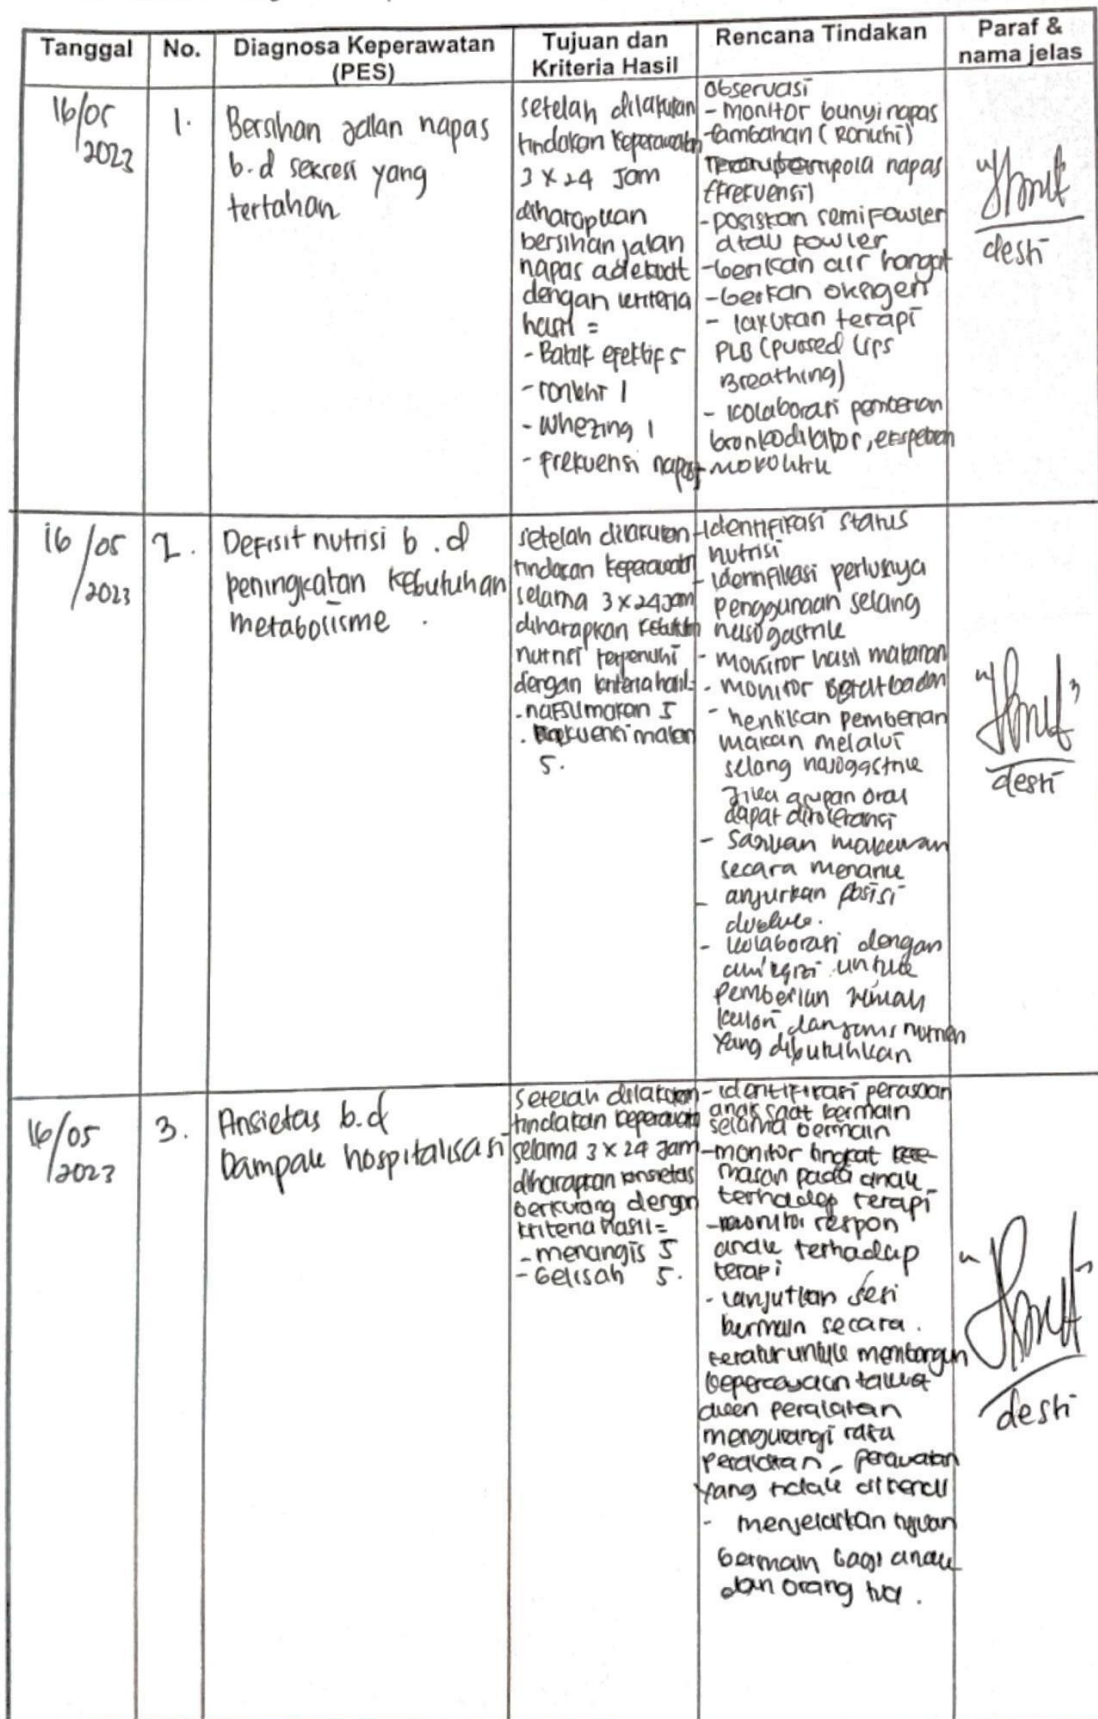 Tanggal
No.
Diagnosa Keperawatan
(PES)
Tujuan dan
Kriteria Hasil
Rencana Tindakan
Paraf &
nama jelas
16/05
2023
1.
Bersihan jalan napas
b.d sekresi yang
tertahan
setelah dilakukan
tindakan keperawatan
3 x 24 Jam
diharapkan
bersihan jalan
napas adekuat
dengan kriteria
hasil =
- Batuk efektif 5
- ronkhi 1
- Whezing 1
- Frekuensi napas
observasi
- monitor bunyi napas
tambahan (Ronchi)
pola napas
(frekuensi)
- posisikan semi Fowler
atau fowler
- berikan air hangat
- berikan oksigen
- lakukan terapi
PLB (pursed Lips
Breathing)
- kolaborasi pemberian
bronkodilator,
desti
16/05
2023
2.
Defisit nutrisi b.d
peningkatan kebutuhan
metabolisme.
setelah dilakukan
tindakan keperawatan
selama 3 x 24 jam
diharapkan
nutrisi terpenuhi
dengan kriteria hasil:
- nafsu makan 5
- frekuensi makan
5.
- Identifikasi status
nutrisi
- identifikasi perlunya
penggunaan selang
nasogastrik
- monitor hasil makanan
- monitor Berat badan
- hentikan pemberian
makan melalui
selang nasogastrik
Jika asupan oral
dapat ditoleransi
- Sajikan makanan
secara menarik
- anjurkan posisi
duduk.
- kolaborasi dengan
ahli gizi untuk
pemberian jumlah
kalori dan jenis nutrien
yang dibutuhkan
desti
16/05
2023
3.
Ansietas b.d
Dampak hospitalisasi
setelah dilakukan
tindakan keperawatan
selama 3 x 24 jam
diharapkan ansietas
berkurang dengan
kriteria hasil =
- menangis 5
- Gelisah 5.
- identifikasi perasaan
anak saat bermain
selama bermain
- monitor tingkat kece-
masan pada anak
terhadap terapi
- monitor respon
anak terhadap
terapi
- lanjutkan sesi
bermain secara.
teratur untuk membangun
kepercayaan
peralatan
yang tidak
- menjelaskan tujuan
bermain bagi anak
dan orang tua.
desti